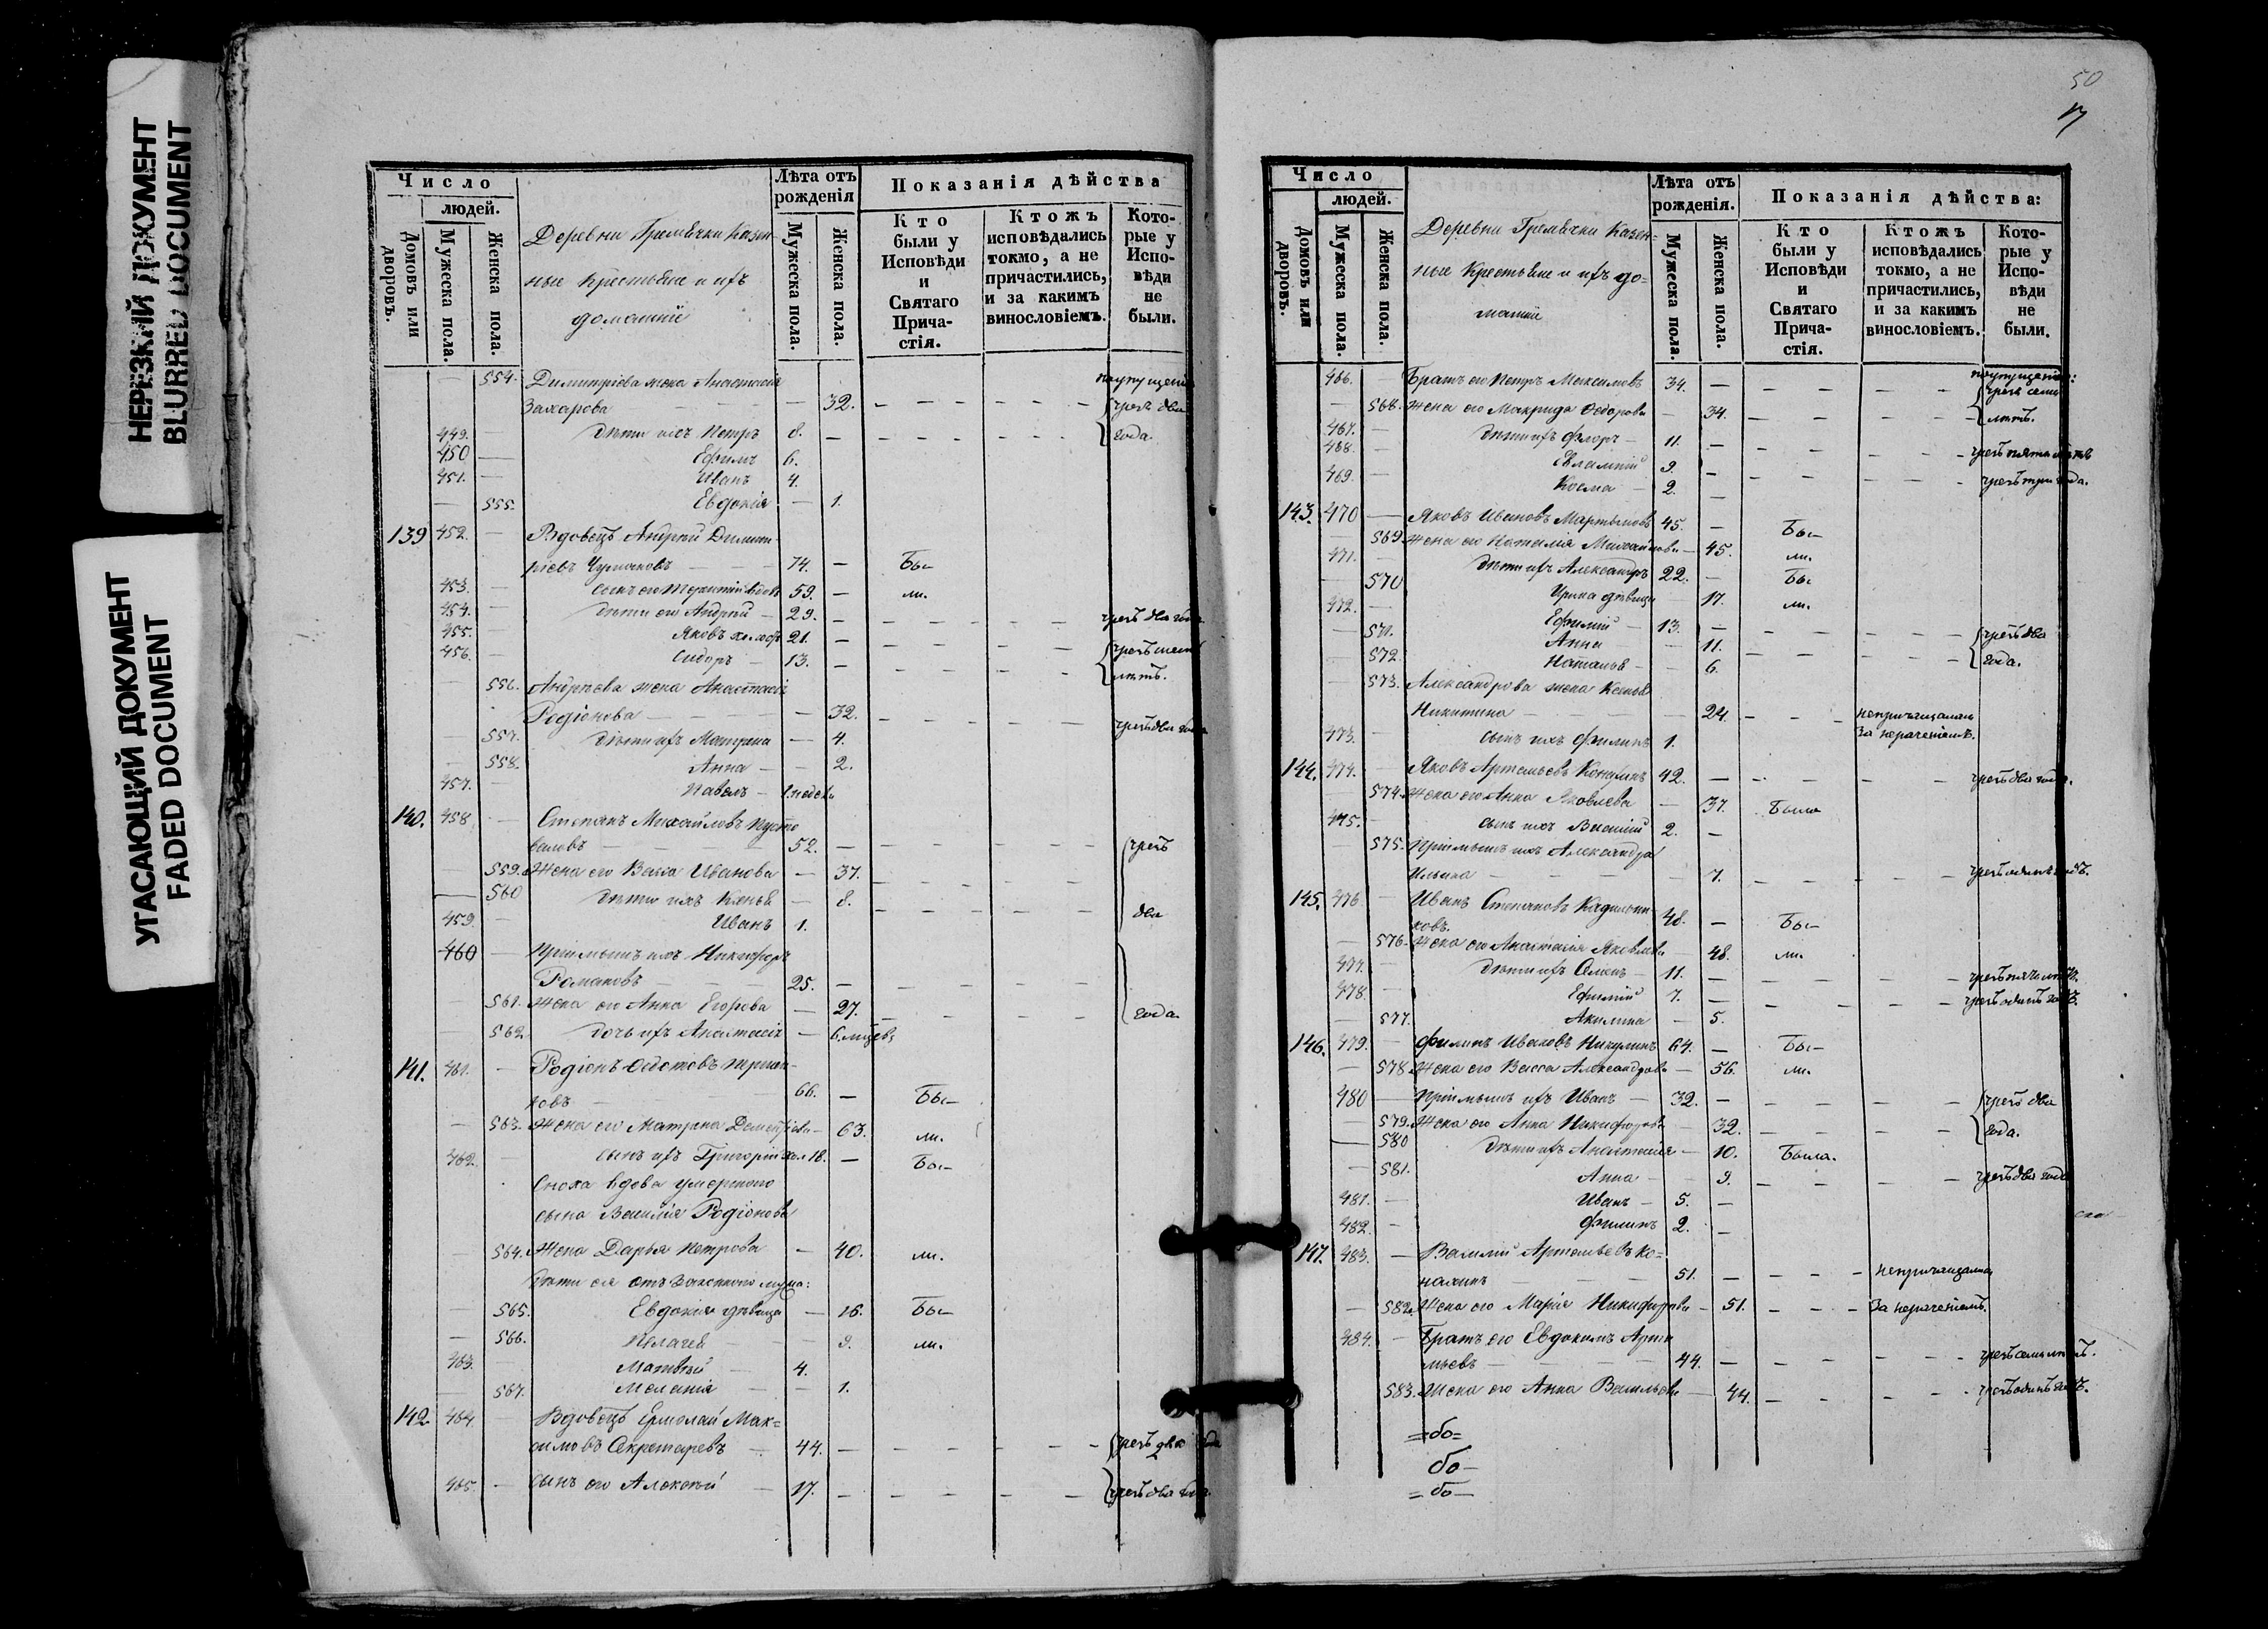 НЕРЕЗКИЙ ДОКУМЕНТ
BLURRED DOCUMENT
УГАСАЮЩИЙ ДОКУМЕНТ
FADED DOCUMENT
Число
людей.
Домовъ или дворовъ.
Мужеска пола.
Женска пола.
Деревни Гремячки Казен-
ные Крестьяне и ихъ
домашніе
Лѣта отъ рожденія
Мужеска пола.
Женска пола.
Показанія дѣйства
Кто были у Исповѣди и Святаго Прича- стія.
Ктожъ исповѣдались токмо, а не причастились, и за какимъ винословіемъ.
Кото- рые у Испо- вѣди не были.
554. Димитріева жена Анастасія по упущенію
Захарова 32. чрезъ два
449. дѣти ихъ Петръ 8. года.
450 Ефимъ 6.
451. Иванъ 4.
555. Евдокія 1.
139 452. Вдовецъ Андрей Димит-
ріевъ Чумаковъ 74. Бы-
453. сынъ его вдовъ 59. ли.
454. дѣти его Андрей 29. чрезъ два года
455. Яковъ холос. 21. чрезъ шесть
456. Сидоръ 13. лѣтъ.
556. Андреева жена Анастасія
Родіонова 32. чрезъ два года
557. дѣти ихъ Матрена 4.
558. Анна 2.
457. Павелъ
140. 458 Степанъ Михайловъ Пусто
валовъ 52. чрезъ
559. Жена его Васса Иванова 37.
560 дѣти ихъ Ксенья 8.
459. Иванъ 1. два
460 Пріемышъ ихъ Никифоръ
Романовъ 25.
561. Жена его Анна Егорова 27. года.
562. дочь ихъ Анастасія 6.
141. 461. Родіонъ Ѳедотовъ
ковъ 66. Бы-
563. Жена его Матрена 63. ли.
462. сынъ ихъ Григорій хол 18. Бы-
Сноха вдова умершаго
сына Василія Родіонова
564. Жена Дарья Петрова 40. ли.
дѣти ея отъ законнаго мужа:
565. Евдокія дѣвица 16. Бы-
566. Пелагея 9. ли.
463. Матвѣй 4.
567. Меланія 1.
142 464. Вдовецъ Ермолай Мак=
симовъ Секретаревъ 44. чрезъ два года
465. сынъ его Алексѣй 17. чрезъ два года
50
17
Число
людей.
Домовъ или дворовъ.
Мужеска пола.
Женска пола.
Деревни Гремячки Казен=
ные Крестьяне и ихъ до=
машніе
Лѣта отъ рожденія.
Мужеска пола.
Женска пола.
Показанія дѣйства:
Кто были у Исповѣди и Святаго Прича- стія.
Ктожъ исповѣдались токмо, а не причастились, и за какимъ винословіемъ.
Кото- рые у Испо- вѣди не были.
466. Братъ его Петръ Максимовъ 34. по упущенію: чрезъ семь
568. Жена его Макрида Ѳедорова 34. лѣтъ.
467. дѣти ихъ Флоръ 11.
468. Евлампій 9. чрезъ пять лѣтъ
469. Косма 2. чрезъ три года.
143. 470 Яковъ Ивановъ Мартыновъ 45. Бы-
569. Жена его Наталія Михайлова 45. ли.
471. дѣти ихъ Александръ 22. Бы
570 Ирина дѣвица 17. ли.
472. Ефимій 13.
571. Анна 11. чрезъ два
572. Наталья 6. года.
573. Александрова жена Ксенья
Никитина 24. непричащалась
473. сынъ ихъ Филипъ 1. за нераченіемъ.
144. 474. Яковъ Артемьевъ Конякинъ 42. чрезъ два года.
574. Жена его Анна Яковлева 37. Была
475. сынъ ихъ Василій 2.
575. Пріемышъ ихъ Александра
Ильина 7. чрезъ одинъ годъ.
145. 476 Иванъ Степановъ Кадильни-
ковъ. 48. Бы-
576. Жена его Анастасія Яковлева 48. ли.
477. дѣти ихъ Семенъ 11. чрезъ пять лѣтъ.
478. Ефимій 7. чрезъ одинъ годъ.
577. Акилина 5.
146. 479. Филипъ Ивановъ Никулинъ 64. Бы-
578. Жена его Васса Александрова 56. ли.
480 Пріемышъ ихъ Иванъ 32. чрезъ два
579. Жена его Анна Никифорова 32. года.
580 дѣти ихъ Анастасія 10. Была.
581. Анна 9. чрезъ два года
481. Иванъ 5.
482. Филипъ 2.
147. 483. Василій Артемьевъ Ко=
някинъ 51. непричащались
582. Жена его Марія Никифорова 51. за нераченіемъ.
484. Братъ его Евдокимъ Арте
мьевъ 44. чрезъ семь лѣтъ.
583. Жена его Анна Васильева 44. чрезъ одинъ годъ.
=бо=
бо-
=бо-